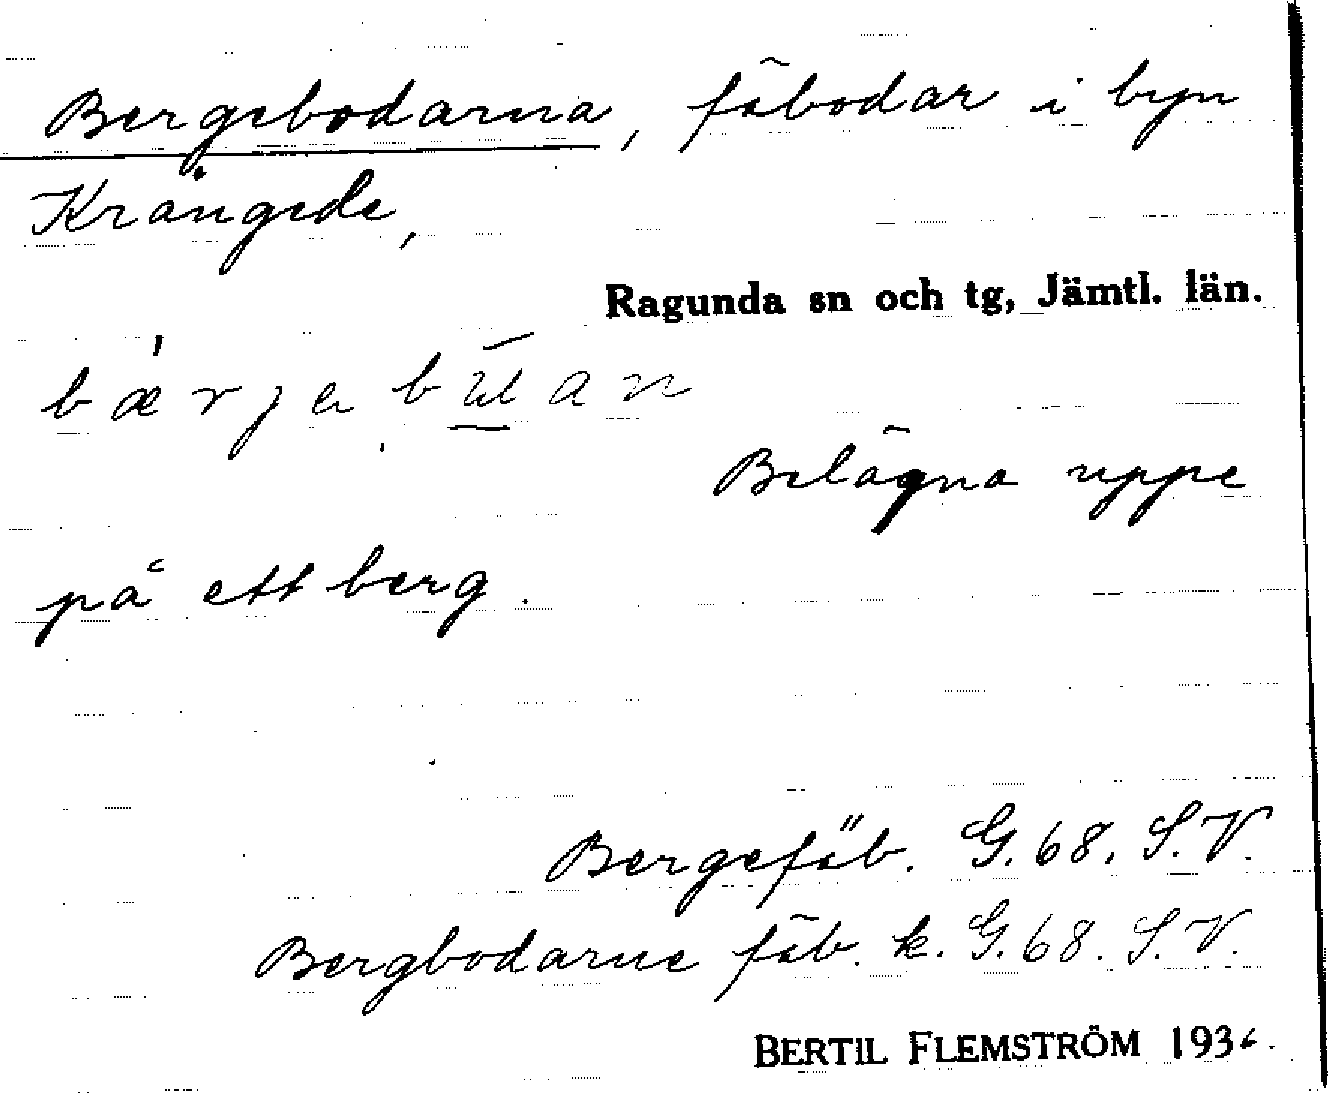 Bergebodarna, fäbodar i byn
Krångede,
Ragunda sn och tg, Jämtl. län.
Belägna uppe
på ett berg.
Bergefäb. G. 68. S.V.
Bergbodarne fäb. k. G. 68. S.V.
BERTIL FLEMSTRÖM 1936.